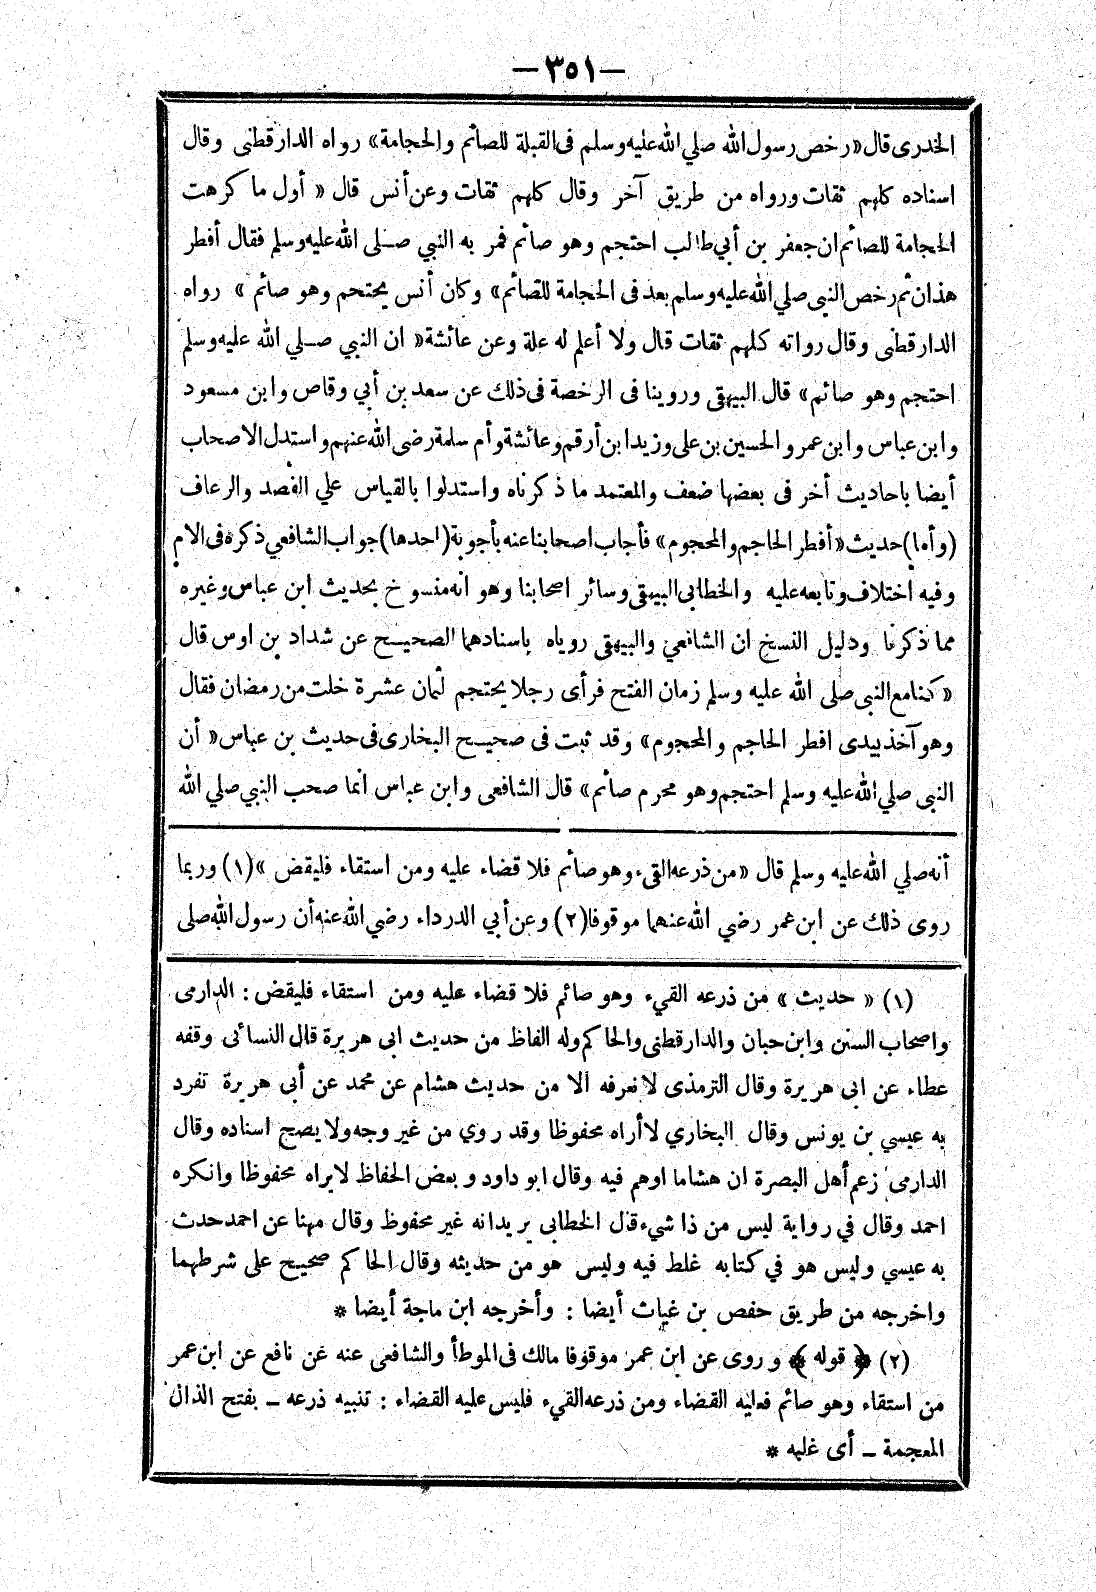 —٣٥١—
الخدرى قال «رخص رسول الله صلي الله عليه وسلم فى القبلة للصائم والحجامة» رواه الدارقطنى وقال
اسناده كلهم ثقات ورواه من طريق آخر وقال كلهم ثقات وعن أنس قال « أول ما كرهت
الحجامة للصائم ان جعفر بن أبي طالب احتجم وهو صائم فمر به النبي صلى الله عليه وسلم فقال أفطر
هذان ثم رخص النبى صلي الله عليه وسلم بعد فى الحجامة للصائم» وكان أنس يحتجم وهو صائم » رواه
الدارقطنى وقال رواته كلهم ثقات قال ولا أعلم له علة وعن عائشة « ان النبي صلي الله عليه وسلم
احتجم وهو صائم» قال البيهقى وروينا فى الرخصة فى ذلك عن سعد بن أبي وقاص وابن مسعود
وابن عباس وابن عمر والحسين بن على وزيد ابن أرقم وعائشة وأم سلمة رضى الله عنهم واستدل الاصحاب
أيضا باحاديث أخر فى بعضها ضعف والمعتمد ما ذكرناه واستدلوا بالقياس علي الفصد والرعاف
(وأما) حديث «أفطر الحاجم والمحجوم» فأجاب اصحابنا عنه بأجوبة (احدها) جواب الشافعي ذكره فى الام
وفيه اختلاف وتابعه عليه والخطابى البيهقى وسائر اصحابنا وهو انه منسوخ بحديث ابن عباس وغيره
مما ذكرنا ودليل النسخ ان الشافعي والبيهقى روياه باسنادهما الصحيح عن شداد بن اوس قال
« كنا مع النبى صلى الله عليه وسلم زمان الفتح فرأى رجلا يحتجم لثمان عشرة خلت من رمضان فقال
وهو آخذ بيدى افطر الحاجم والمحجوم» وقد ثبت فى صحيح البخارى فى حديث بن عباس « أن
النبى صلي الله عليه وسلم احتجم وهو محرم صائم» قال الشافعى وابن عباس انما صحب النبي صلي الله
أنه صلي الله عليه وسلم قال «من ذرعه القىء وهو صائم فلا قضاء عليه ومن استقاء فليقض » (١) وربما
روى ذلك عن ابن عمر رضي الله عنهما موقوفا (٢) وعن أبي الدرداء رضي الله عنه أن رسول الله صلى
(١) « حديث » من ذرعه القيء وهو صائم فلا قضاء عليه ومن استقاء فليقض : الدارمى
واصحاب السنن وابن حبان والدارقطنى والحاكم وله الفاظ من حديث ابى هريرة قال النسائى وقفه
عطاء عن ابى هريرة وقال الترمذى لا نعرفه الا من حديث هشام عن محمد عن أبى هريرة تفرد
به عيسي بن يونس وقال البخاري لا أراه محفوظا وقد روي من غير وجه ولا يصح اسناده وقال
الدارمى زعم أهل البصرة ان هشاما اوهم فيه وقال ابو داود وبعض الحفاظ لا يراه محفوظا وانكره
احمد وقال في رواية ليس من ذا شيء قال الخطابى يريد انه غير محفوظ وقال مهنا عن احمد حدث
به عيسي وليس هو في كتابه غلط فيه وليس هو من حديثه وقال الحاكم صحيح على شرطهما
واخرجه من طريق حفص بن غياث أيضا : وأخرجه ابن ماجة أيضا *
(٢) ﴿ قوله ﴾ وروى عن ابن عمر موقوفا مالك فى الموطأ والشافعى عنه عن نافع عن ابن عمر
من استقاء وهو صائم فعليه القضاء ومن ذرعه القيء فليس عليه القضاء : تنبيه ذرعه ــ بفتح الذال
المعجمة ــ أى غلبه *